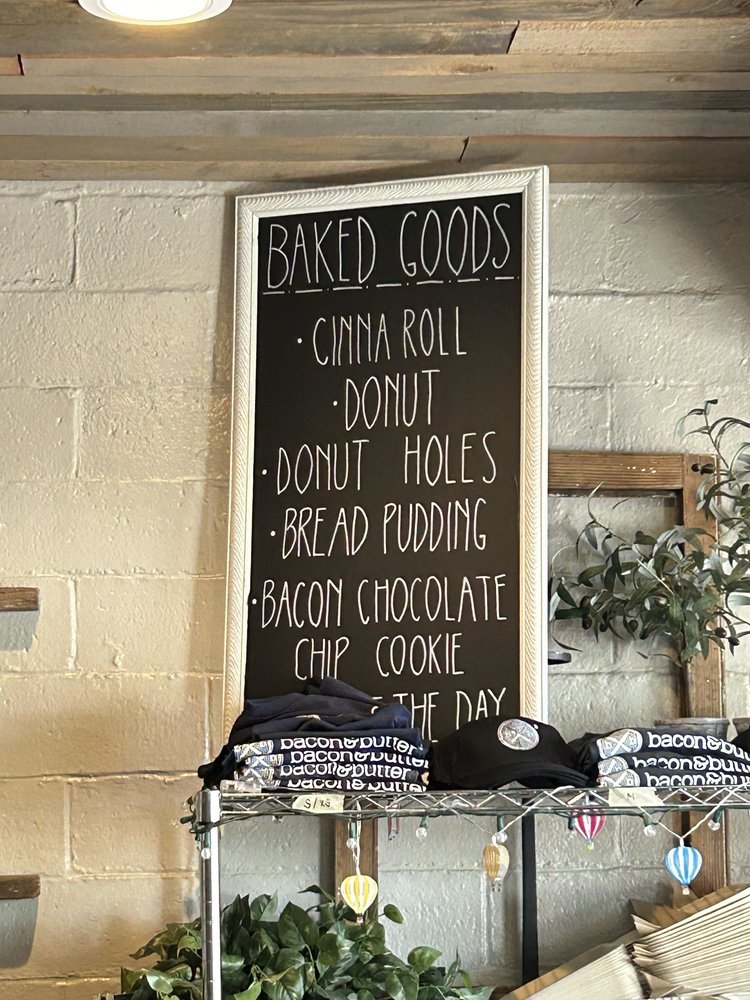 BAKED GOODS
· CINNA ROLL
· DONUT
· DONUT HOLES
· BREAD PUDDING
· BACON CHOCOLATE
CHIP COOKIE
THE DAY
bacon&butter
bacon&butter
bacon&butter
bacon&butter
bacon&butter
bacon&butter
bacon&butter
S/XS
M